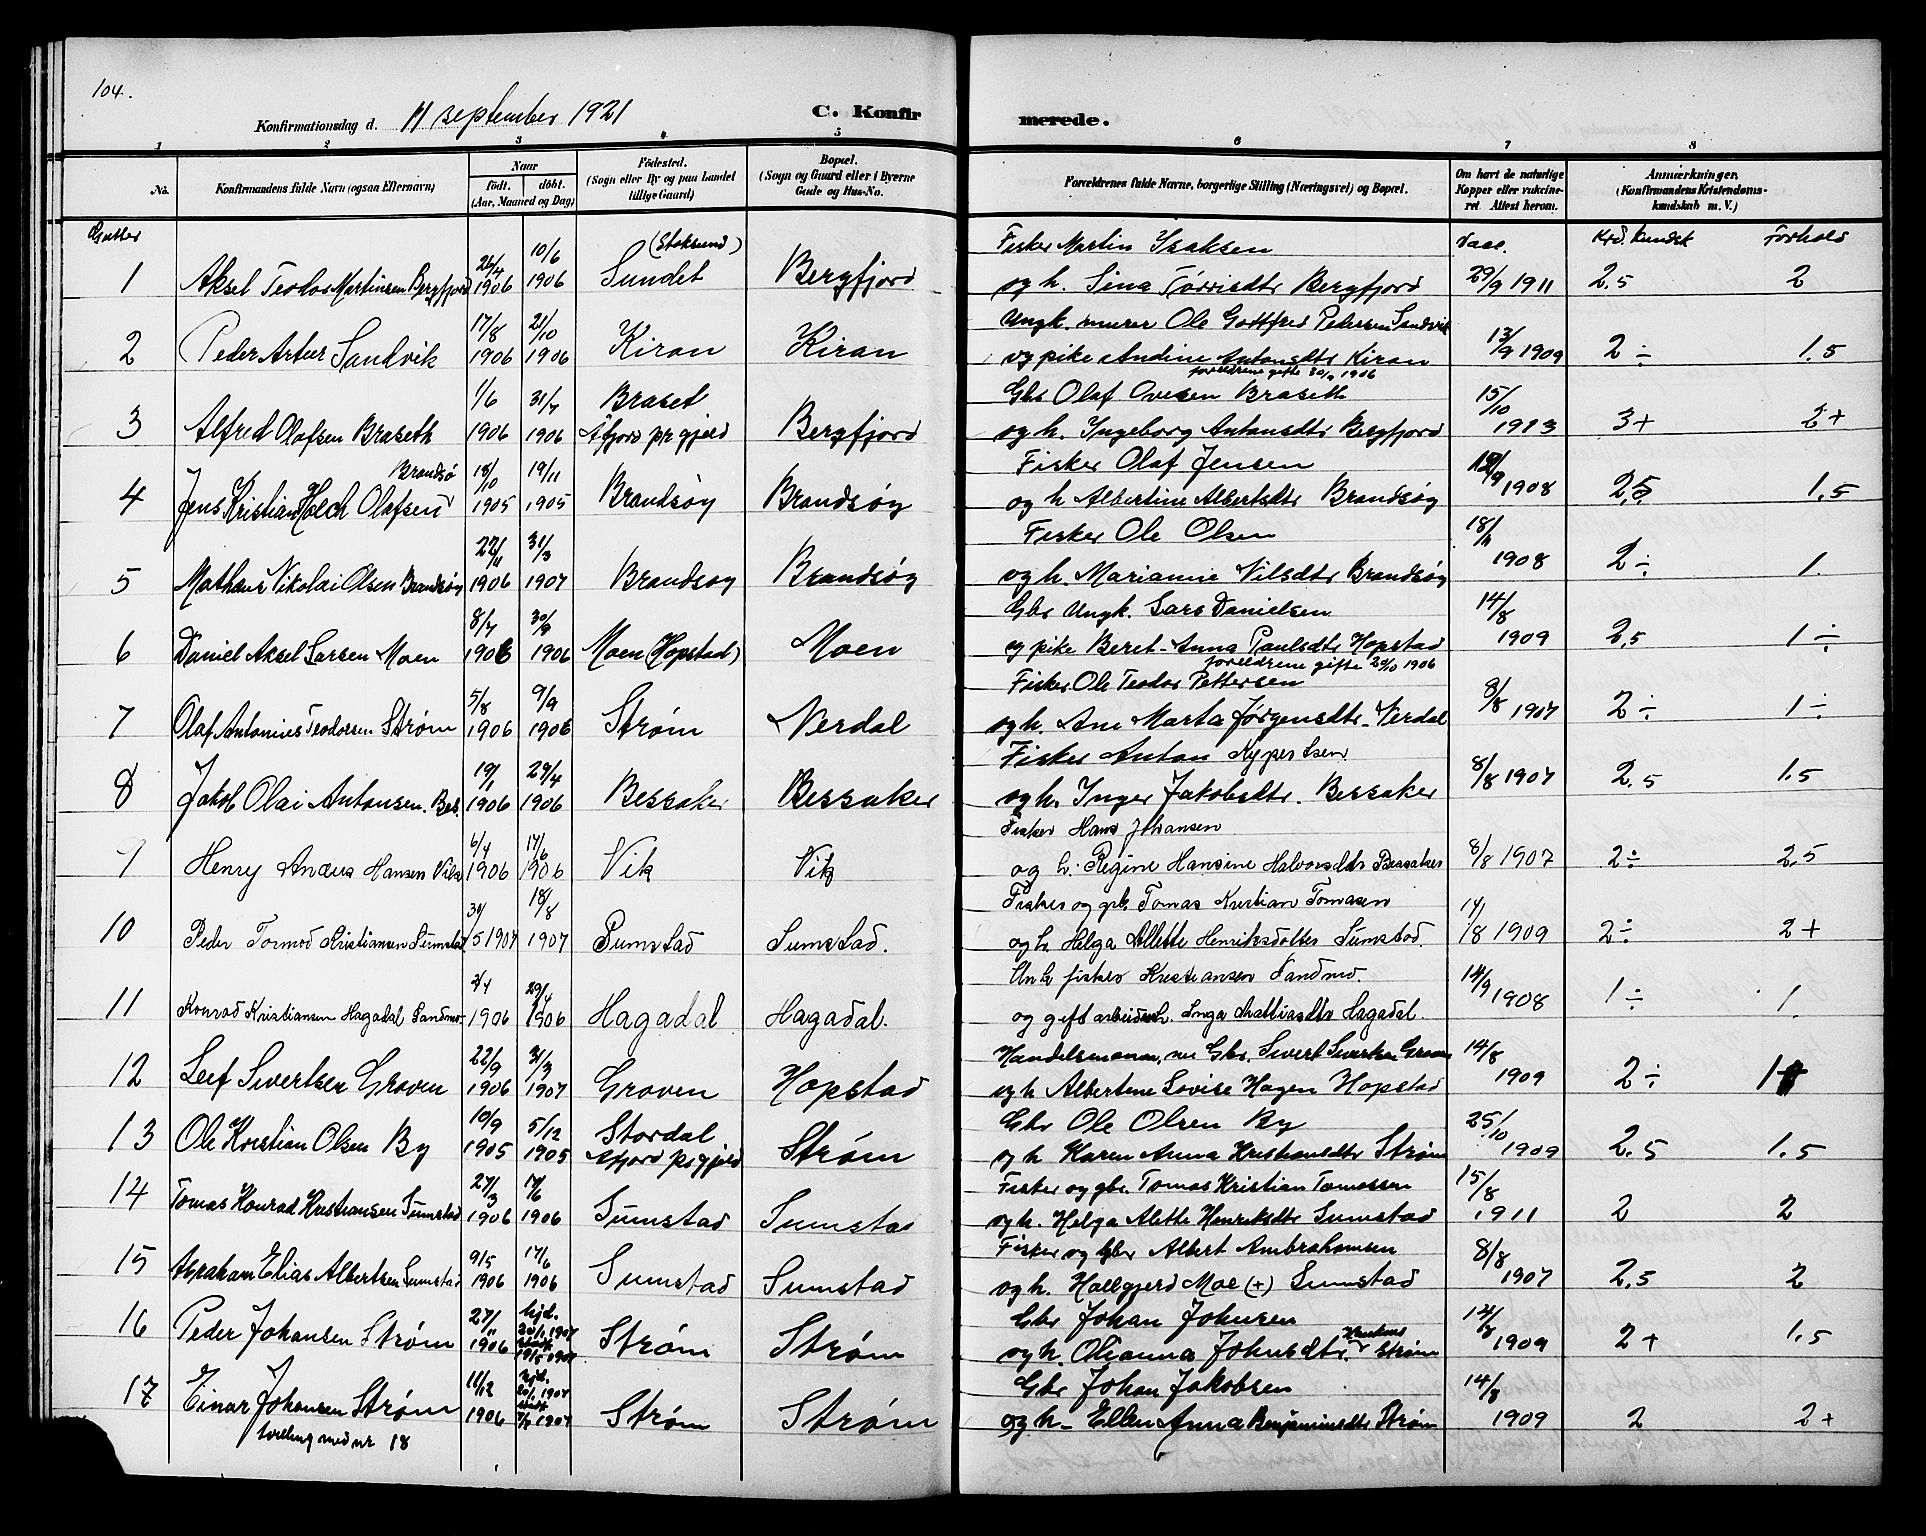 104.
Konfirmationsdag d. 11 september 1921
C. Konfirmerede.
1 2 3 4 5 6 7 8
No.
Konfirmandens fulde Navn (ogsaa Efternavn)
Naar
født. døbt.
(Aar, Maaned og Dag)
Fødested.
(Sogn eller By og paa Landet tillige Gaard)
Bopæl.
(Sogn og Gaard eller i Byerne Gade og Hus-No.
Forældrenes fulde Navne, borgerlige Stilling (Næringsvei) og Bopæl.
Om havt de naturlige Kopper eller vaccineret. Attest herom.
Anmærkninger,
(Konfirmandens Kristendomskundskab m. V.)
Gutter
Vacc. Krd. kundsk Forhold
1 Aksel Teodor Martinsen Bergfjord 26/4 1906 10/6 1906 (Stoksund) Sundet Bergfjord
Fisker Martin Isaksen
og h. Sina Tørrisdtr Bergfjord 29/9 1911 2,5 2
2 Peder Artur Sandvik 17/8 1906 21/10 1906 Kiran Kiran
Ungk. murer Ole Gottfred Pedersen Sandvik
og pike Andine Antonsdtr Kiran 13/9 1909 2 ÷ 1.5
3 Alfred Olafsen Braseth 1/6 1906 31/7 1906 Braset Afjord pr gjeld Bergfjord
Gbr Olaf Ovesen Braseth
og h. Ingeborg Antonsdtr Bergfjord 15/10 1913 3+ 2+
4 Jens Kristian Holch Olafsen Brandsø 18/10 1905 19/11 1905 Brandsøy Brandsøy
Fisker Olaf Jensen
og h Albertine Albertsdtr Brandsøy 1908 2,5 1,5
5 Mathæus Nikolai Olsen Brandsøy 22/11 1906 31/3 1907 Brandsøy Brandsøy
Fisker Ole Olsen
og h. Marianne Nilsdtr Brandsøy 1908 2 ÷ 1.
6 Daniel Aksel Larsen Moen 8/7 1906 30/9 1906 Moen (Hopstad) Moen
Gbr Ungk. Lars Danielsen
og pike Beret-Anna Paulsdtr Hopstad 14/8 1909 2,5 1 ÷
forældrene gifte 20/10 1906
7 Olaf Antonius Teodorsen Strøm 5/8 1906 9/9 1906 Strøm Nerdal
Fisker Ole Teodor Pettersen
og h. Ane Marta Jørgensdtr Nerdal 8/8 1907 2 ÷ 1 ÷
8 Jakob Olai Antonsen. Bes. 19/1 1906 29/4 1906 Bessaker Bessaker
Fisker Anton Kyppertsen
og h. Inger Jakobsdtr. Bessaker 8/8 1907 2,5 1.5
9 Henry Andeus Hansen Vik 6/4 1906 17/6 1906 Vik Vik
Fisker Hans Johansen
og h. Regine Hansine Halvorsdtr Bessaker 8/8 1907 2 ÷ 2,5
10 Peder Tormod Kristiansen Sumstad 1907 18/8 1907 Sumstad Sumstad.
Fisker og gbr. Tomas Kristian Tomasen
og h. Helga Alette Henriksdotter Sumstad. 1909 2 ÷ 2+
11 Konrad Kristiansen Hagadal Sandmo 1906 29/4 1906 Hagadal Hagadal.
Unk fisker Kristiansen Sandmo
og gift arbeidsk. Inga Mattiasdtr Hagadal. 14/9 1908 1 ÷ 1.
12 Leif Sivertsen Groven 22/9 1906 31/3 1907 Groven Hopstad
Handelsmann, nu Gbr. Sivert Sivertsen Groven
og h Albertine Lovise Hagen Hopstad 14/8 1909 2 ÷
13 Ole Kristian Olsen By 10/9 1905 5/12 1905 Stordal Afjord prgjeld Strøm
Gbr Ole Olsen By
og h Karen Anna Kristiansdtr Strøm 25/10 1909 2,5 1,5
14 Tomas Konrad Kristiansen Sumstad 27/3 1906 17/6 1906 Sumstad Sumstad
Fisker og gbr. Tomas Kristian Tomassen
og h. Helga Alette Henriksdtr Sumstad 15/8 1911 2 2
15 Abraham Elias Albertsen Sumstad 9/5 1906 17/6 1906 Sumstad Sumstad
Fisker og Gbr Albert Ambrahamsen
og h. Hallgjerd Moe (+) Sumstad 8/8 1907 2,5 2
16 Peder Johansen Strøm 27/11 1906 hjd. 20/1 1907 19/5 1907 Strøm Strøm
Gbr Johan Johnsen
og h. Olianna Johnsdtr. Strøm 14/8 1909 2+ 1.5
17 Einar Johansen Strøm 11/12 1906 hjd. 20/1 1907 1907 Strøm Strøm
Gbr Johan Jakobsen
og h- Ellen Anna Benjaminsdtr Strøm 14/8 1909 2 2+
tvilling med nr 18